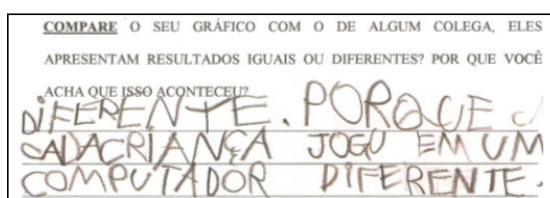 COMPARE O SEU GRÁFICO COM O DE ALGUM COLEGA, ELES
APRESENTAM RESULTADOS IGUAIS OU DIFERENTES? POR QUE VOCÊ
ACHA QUE ISSO ACONTECEU?
DIFERENTE. PORQUE
CADACRIANÇA JOGU EM UM
COMPUTADOR DIFERENTE.